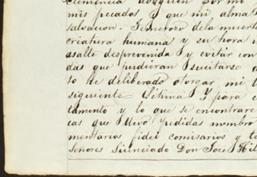 clemencia aboguen por mi
mis pecados y que mi alma
salvacion. Temeroso de la muerte
criatura humana y su hora
asalte desprevenido y evitar con
das que pudieran suscitarse
to he deliberado otorgar mi
siguiente. Y para
tamento y lo que se encontrare
cas que llevo nombro
mentarios fidei comisarios y
Señores Licenciado Don José